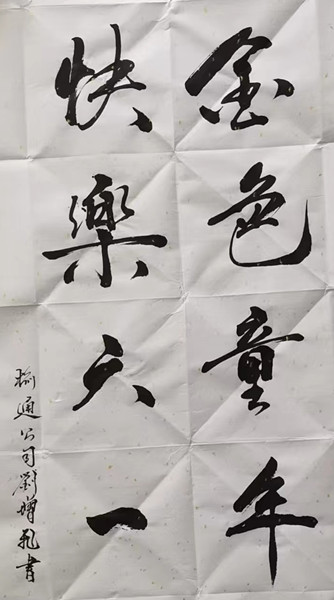 金色童年
快樂六一
瑜通公司劉增孔書